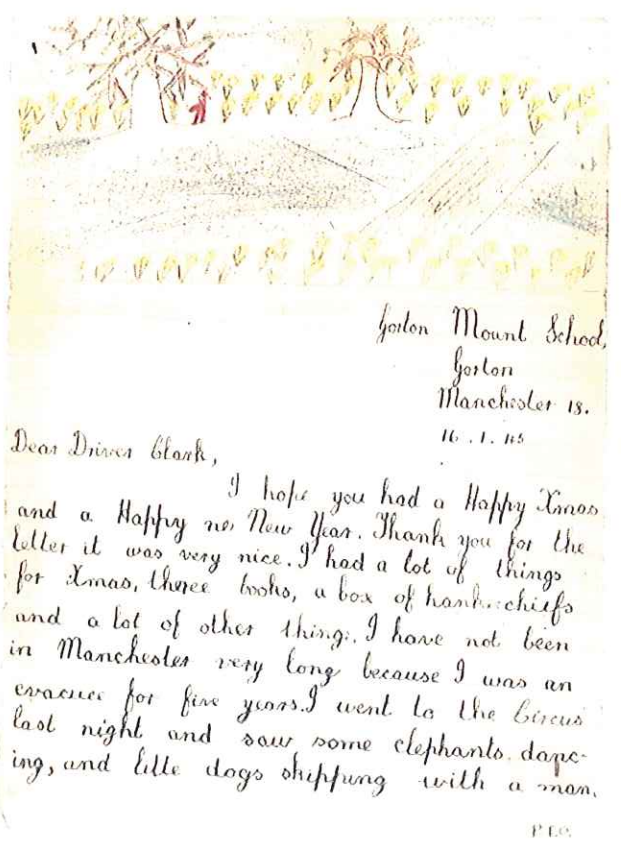 Gorton Mount School,
Gorton
Manchester 18.
16.1.45
Dear Driver Clark,
I hope you had a Happy Xmas
and a Happy ne New Year. Thank you for the
letter it was very nice. I had a lot of things
for Xmas, theree books, a box of hankerchiefs
and a lot of other things. I have not been
in Manchester very long because I was an
evacuee for five years. I went to the Circus
last night and saw some elephants danc-
ing, and little dogs skipping with a man.
P.T.O.